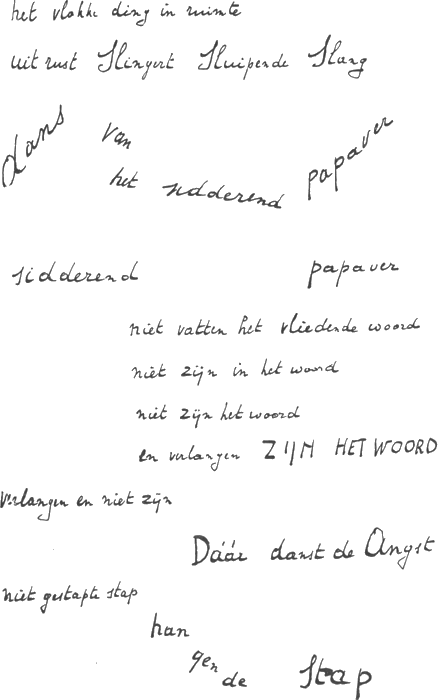 het vlakke ding in ruimte
uit rust Slingert Sluipende Slang
dans van
het sidderend papaver
sidderend papaver
niet vatten het vliedende woord
niet zijn in het woord
niet zijn het woord
en verlangen ZIJN HET WOORD
verlangen en niet zijn
Dáár danst de Angst
niet gestapte stap
han
gen
de Stap